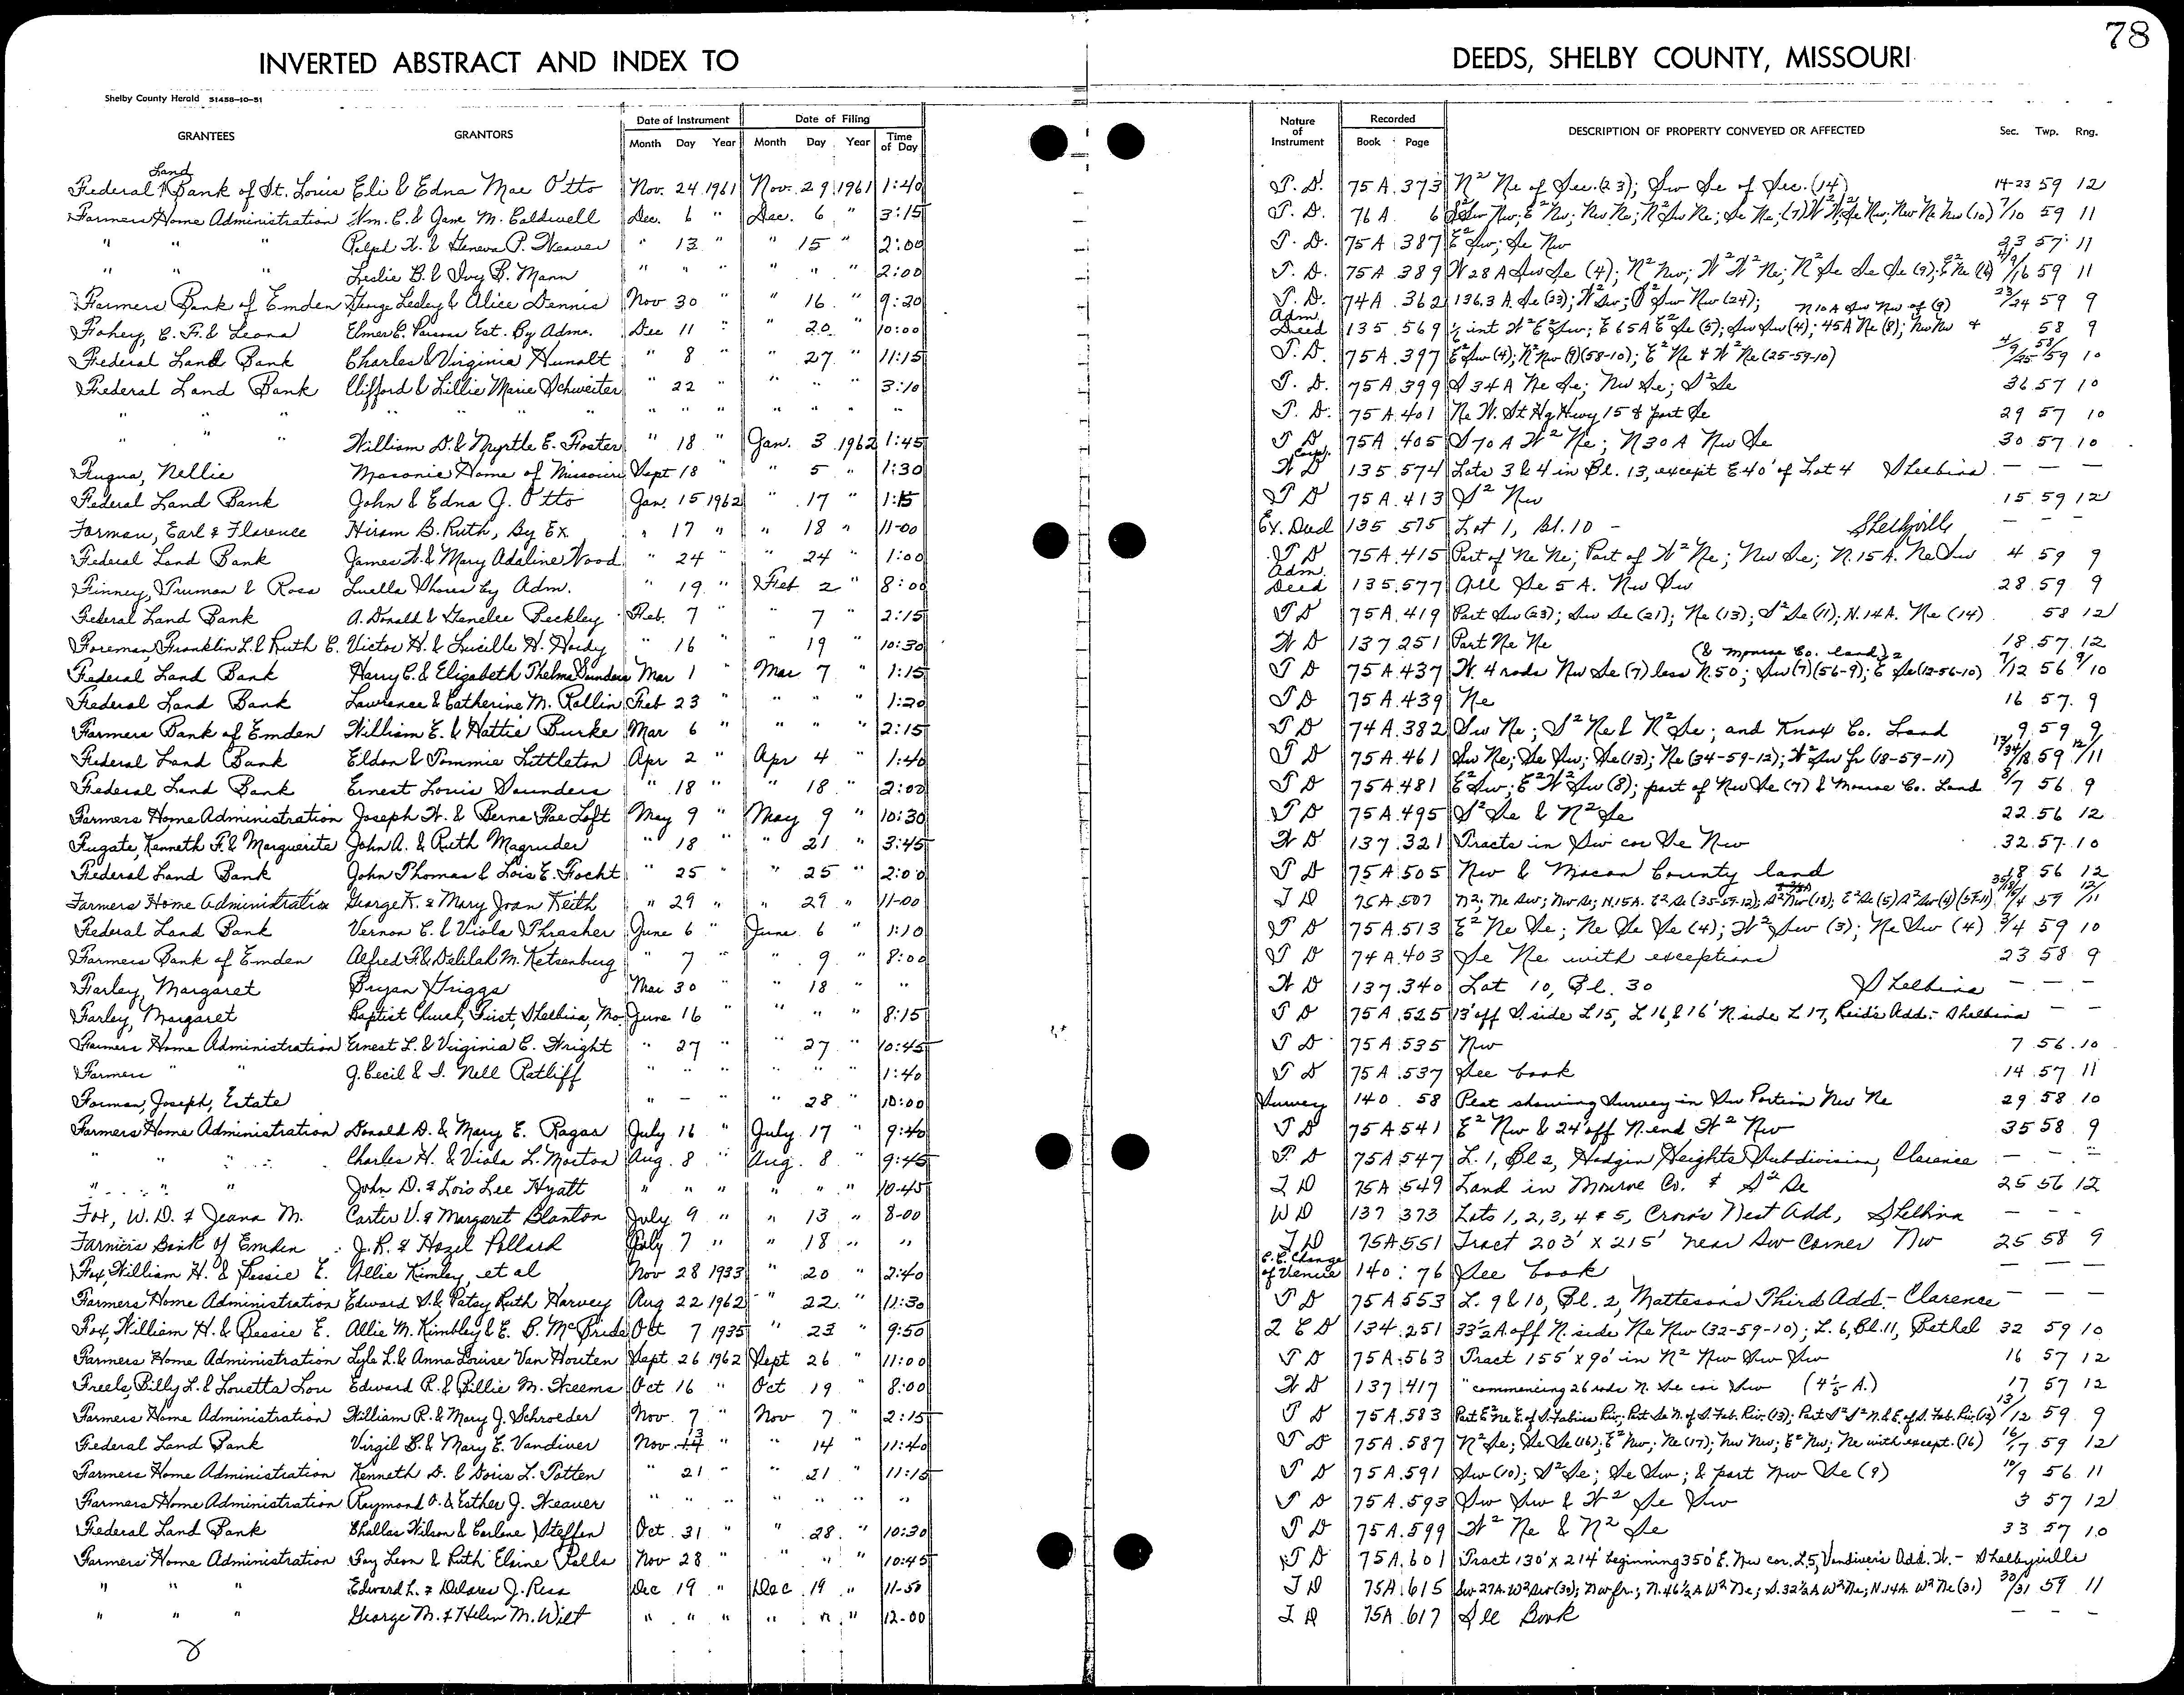 78
INVERTED ABSTRACT AND INDEX TO DEEDS, SHELBY COUNTY, MISSOURI
Shelby County Herald 51458-10-51
GRANTEES GRANTORS Date of Instrument Month Day Year Date of Filing Month Day Year Time of Day Nature of Instrument Recorded Book Page DESCRIPTION OF PROPERTY CONVEYED OR AFFECTED Sec. Twp. Rng.
Federal Land Bank of St. Louis Eli & Edna Mae Otto Nov. 24 1961 Nov. 29 1961 1:40 T. D. 75A 373 N² Ne of Sec. (23); Sw Se of Sec. (14) 14-23 59 12
Farmers Home Administration Wm. C. & Jane M. Caldwell Dec. 6 " Dec. 6 " 3:15 T. D. 76A 6 7/10 59 11
" " " Ralph W. & Geneva P. Weaver " 13 " " 15 " 2:00 T. D. 75A 387 E² Sw; Se Nw 23 57 11
" " " Leslie B. & Ivy B. Mann " " " " " " 2:00 T. D. 75A 389 W 28 A Sw Se (4); N² Nw; W² W² Ne; N² Se Se Se (9); E² Ne (16) 4/9/16 59 11
Farmers Bank of Emden George Lesley & Alice Dennis Nov 30 " " 16 " 9:20 T. D. 74A 362 136.3 A. Se (23); W² Sw; S² Sw Nw (24); 23/24 59 9
Fohey, C. F. & Leona Elmer C. Parsons Est. By Adm. Dec 11 " " 20 " 10:00 Adm. Deed 135 569 ½ int W² E² Sw; E 65A E² Se (5); Sw Sw (4); 45A Ne (8); Nw Nw & N10A Sw Nw of (9) 58 9
Federal Land Bank Charles & Virginia Hunolt " 8 " " 27 " 11:15 T. D. 75A 397 E² Sw (4); N² Nw (9) (58-10); E² Ne & W² Ne (25-59-10) 4/9/25 58/59 10
Federal Land Bank Clifford & Lillie Marie Schweiter " 22 " " " " 3:10 T. D. 75A 399 S 34 A Ne Se; Nw Se; S² Se 36 57 10
" " " " " " " " " " " " " " T. D. 75A 401 Ne W. St Hg Hwy 15 & part Se 29 57 10
" " " William D. & Myrtle E. Foster " 18 " Jan. 3 1962 1:45 T D 75A 405 S 70 A W² Ne; N 30 A Nw Se 30 57 10
Fuqua, Nellie Masonic Home of Missouri Sept 18 " 5 " 1:30 Corp. W D 135 574 Lots 3 & 4 in Bl. 13, except E 40' of Lot 4 Shelbina — — —
Federal Land Bank John & Edna J. Otto Jan. 15 1962 " 17 " 1:15 T D 75A 413 S² Nw 15 59 12
Forman, Earl & Florence Hiram B. Ruth, By Ex " 17 " " 18 " 11-00 Ex. Deed 135 575 Lot 1, Bl. 10 - Shelbyville — — —
Federal Land Bank James W. & Mary Adaline Wood " 24 " 24 " 1:00 T D 75A 415 Part of Ne Ne; Part of W² Ne; Nw Se; N. 15 A. Ne Sw 4 59 9
Finney, Truman & Rosa Luella Shores by Adm. " 19 " Feb 2 " 8:00 Adm. Deed 135 577 All Se 5 A. Nw Sw 28 59 9
Federal Land Bank A. Donald & Genelee Peckley Feb. 7 " " 7 " 2:15 T D 75A 419 Part Sw (23); Sw Se (21); Ne (13); S² Se (11); N. 14 A. Ne (14) 58 12
Foreman, Franklin L. & Ruth C. Victor H. & Lucille H. Hardy " 16 " 19 " 10:30 W D 137 251 Part Ne Ne 18 57 12
Federal Land Bank Harry C. & Elizabeth Thelma Saunders Mar 1 " Mar 7 " 1:15 T D 75A 437 W. 4 rods Nw Se (7) less N. 50; Sw (7) (56-9); E² Se (12-56-10) (& Monroe Co. land) 7/12 56 9/10
Federal Land Bank Lawrence & Catherine M. Rollin Feb 23 " " " " 1:20 T D 75A 439 Ne 16 57 9
Farmers Bank of Emden William E. & Hattie Burke Mar 6 " " " " 2:15 T D 74A 382 Sw Ne; S² Ne & N² Se; and Knox Co. Land 9 59 9
Federal Land Bank Eldon & Tommie Littleton Apr 2 " Apr 4 " 1:40 T D 75A 461 Sw Ne; Se Sw; Se (13); Ne (34-59-12); W² Sw fr (18-59-11) 13/34/18 59 12/11
Federal Land Bank Ernest Louis Saunders " 18 " " 18 " 2:00 T D 75A 481 E² Sw; E² W² Sw (8); part of Nw Se (7) & Monroe Co. Land 8/7 56 9
Farmers Home Administration Joseph W. & Berna Rae Loft May 9 " May 9 " 10:30 T D 75A 495 S² Se & N² Se 22 56 12
Fugate, Kenneth F. & Marguerite John A. & Ruth Magruder " 18 " 21 " 3:45 W D 137 321 Tracts in Sw cor Se Nw 32 57 10
Federal Land Bank John Thomas & Lois E. Focht " 25 " " 25 " 2:00 T D 75A 505 Nw & Macon County land 18 56 12
Farmers Home Administration George K. & Mary Joan Keith " 29 " " 29 " 11-00 T D 75A 507 N²; Ne Sw; Nw Se; N. 15A. E² Se (35-59-12); S² Nw (18); E² Se (5) S² Sw (4) (59-11) 59 12/11
Federal Land Bank Vernon C. & Viola Thrasher June 6 " June 6 " 1:10 T D 75A 513 E² Ne Se; Ne Se Se (4); W² Sw (3); Ne Sw (4) 3/4 59 10
Farmers Bank of Emden Alfred F. & Delilah M. Ketsenburg " 7 " " 9 " 8:00 T D 74A 403 Se Ne with exceptions 23 58 9
Farley, Margaret Bryan Griggs Mar 30 " " 18 " " W D 137 340 Lot 10, Bl. 30 Shelbina — — —
Farley, Margaret Baptist Church, First, Shelbina, Mo. June 16 " " " " 8:15 T D 75A 525 13' off S side L 15, L 16, & 16' N. side L 17, Reid's Add. - Shelbina — —
Farmers Home Administration Ernest L. & Virginia C. Wright " 27 " " 27 " 10:45 T D 75A 535 Nw 7 56 10
Farmers " " J. Cecil & I. Nell Ratliff " " " " " " 1:40 T D 75A 537 See book 14 57 11
Forman, Joseph, Estate " — " " 28 " 10:00 Survey 140 58 Plat showing Survey in Sw Portion Nw Ne 29 58 10
Farmers Home Administration Donald D. & Mary E. Ragar July 16 " July 17 " 9:40 T D 75A 541 E² Nw & 24' off N. end W² Nw 35 58 9
" " " Charles H. & Viola L. Morton Aug. 8 " Aug. 8 " 9:45 T D 75A 547 L. 1, Bl 2, Hodgin Heights Subdivision, Clarence — — —
" " " John D. & Lois Lee Hyatt " " " " " " 10-45 T D 75A 549 Land in Monroe Co. & S² Se 25 56 12
Fox, W. D. & Jeana M. Carter V. & Margaret Blanton July 9 " " 13 " 8-00 WD 137 373 Lots 1, 2, 3, 4 & 5, Crow's Nest Add, Shelbina — — —
Farmers Bank of Emden J. R. & Hazel Pollard July 7 " " 18 " " T D 75A 551 Tract 203' X 215' near Sw Corner Nw 25 58 9
Fox, William H. & Bessie E. Allie Kimley, et al Nov 28 1933 " 20 " 2:40 C. C. Change of Venue 140 76 See book — — —
Farmers Home Administration Edward S. & Patsy Ruth Harvey Aug 22 1962 " 22 " 11:30 T D 75A 553 L. 9 & 10, Bl. 2, Matteson's Third Add. - Clarence — — —
Fox, William H. & Bessie E. Allie M. Kimbley & E. B. McBride Oct 7 1935 " 23 " 9:50 Q C D 134 251 33½ A off N. side Ne Nw (32-59-10); L. 6, Bl. 11, Bethel 32 59 10
Farmers Home Administration Lyle L. & Anna Louise Van Houten Sept 26 1962 Sept 26 " 11:00 T D 75A 563 Tract 155' x 90' in N² Nw Sw Sw 16 57 12
Freels, Billy L. & Louetta Lou Edward R. & Billie M. Weems Oct 16 " Oct 19 " 8:00 W D 137 417 " commencing 26 rods N. Se cor Sw (4 ⅕ A.) 17 57 12
Farmers Home Administration William R. & Mary J. Schroeder Nov. 7 " Nov 7 " 2:15 T D 75A 583 Part E² Ne E. of S. Fabius Riv; Part Se N. of S. Fab. Riv. (13); Part S² S² N. & E. of S. Fab. Riv. (12) 13/12 59 9
Federal Land Bank Virgil B. & Mary E. Vandiver Nov 13 " " 14 " 11:40 T D 75A 587 N² Se; Se Se (16); E² Nw; Ne (17); Nw Nw; E² Nw; Ne with except. (16) 16/17 59 12
Farmers Home Administration Kenneth D. & Doris L. Patten " 21 " " 21 " 11:15 T D 75A 591 Sw (10); S² Se; Se Sw; & part Nw Se (9) 10/9 56 11
Farmers Home Administration Raymond O. & Esther J. Weaver " " " " " " " T D 75A 593 Sw Sw & W² Se Sw 3 57 12
Federal Land Bank Challas Wilson & Carlene Steffen Oct. 31 " " 28 " 10:30 T D 75A 599 W² Ne & N² Se 33 57 10
Farmers Home Administration Foy Leon & Ruth Elaine Falls Nov 28 " " " " 10:45 T D 75A 601 Tract 130' x 214' beginning 350' E. Nw cor. L 5, Vandiver's Add. W. - Shelbyville
" " " Edward L. & Delores J. Ress Dec 19 " Dec 19 " 11-50 T D 75A 615 Sw 27A. W² Sw (30); Nw fr.; N. 46½ A W² Ne; S. 32½ A W² Ne; N. 14A W² Ne (31) 30/31 59 11
" " " George M. & Helen M. Wilt " " " " " " 12-00 T D 75A 617 See Book — — —